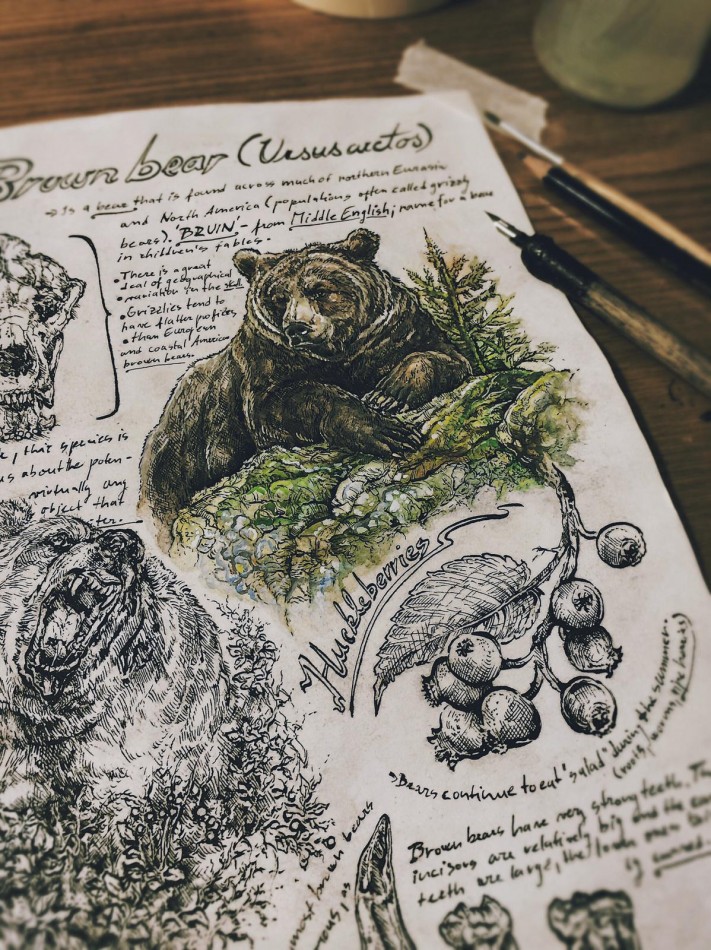 Brown bear (Ursus arctos)
→ Is a bear that is found across much of northern Eurasia
and North America (populations often called grizzly
bears). 'BRUIN' - from Middle English; name for a bear
in children's fables.
• There is a great
deal of geographical
• variation in the skull
• Grizzlies tend to
have flatter profiles
• than European
and coastal American
brown bears.
, this species is
us about the poten-
virtually any
object that
Huckleberries
"Bears continue to eat 'salad' during the summer.
(roots,
Brown bears have very strong teeth. Th
incisors are relatively big and the can
teeth are large, the lower ones
most brown bears